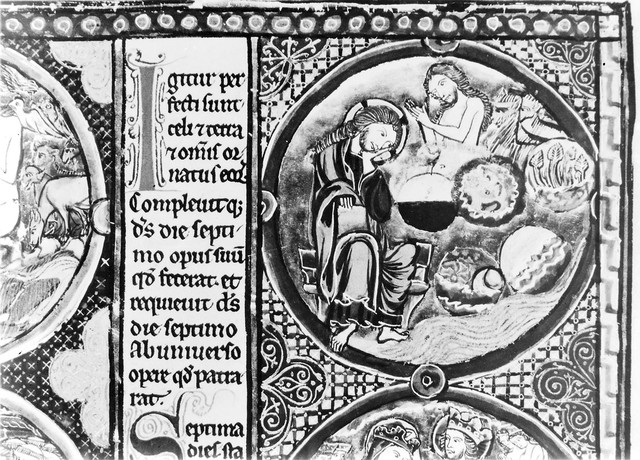 Igitur per
fecti sunt
celi ⁊ terra
⁊ omīs or
natus eoꝝ
Compleuitq;
d̄s die septi
mo opus suū
qd̄ fecerat. et
requieuit d̄s
die septimo
Ab uniuerso
opere qd̄ patra
rat.
Septima
dies sta